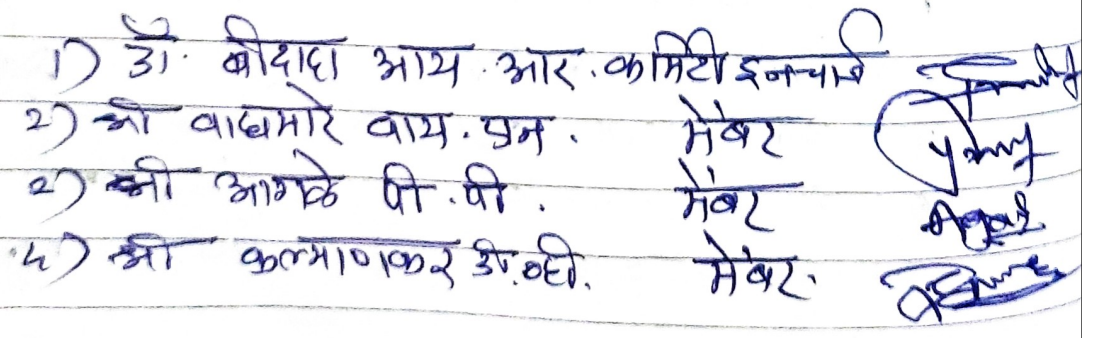 1) डॉ. बीदादा आय.आर. कमिटी इनचार्ज
२) श्री वाघमारे वाय.एन. मेंबर
३) श्री आगळे पी.पी. मेंबर
४) श्री कल्याणकर डी.व्ही. मेंबर.